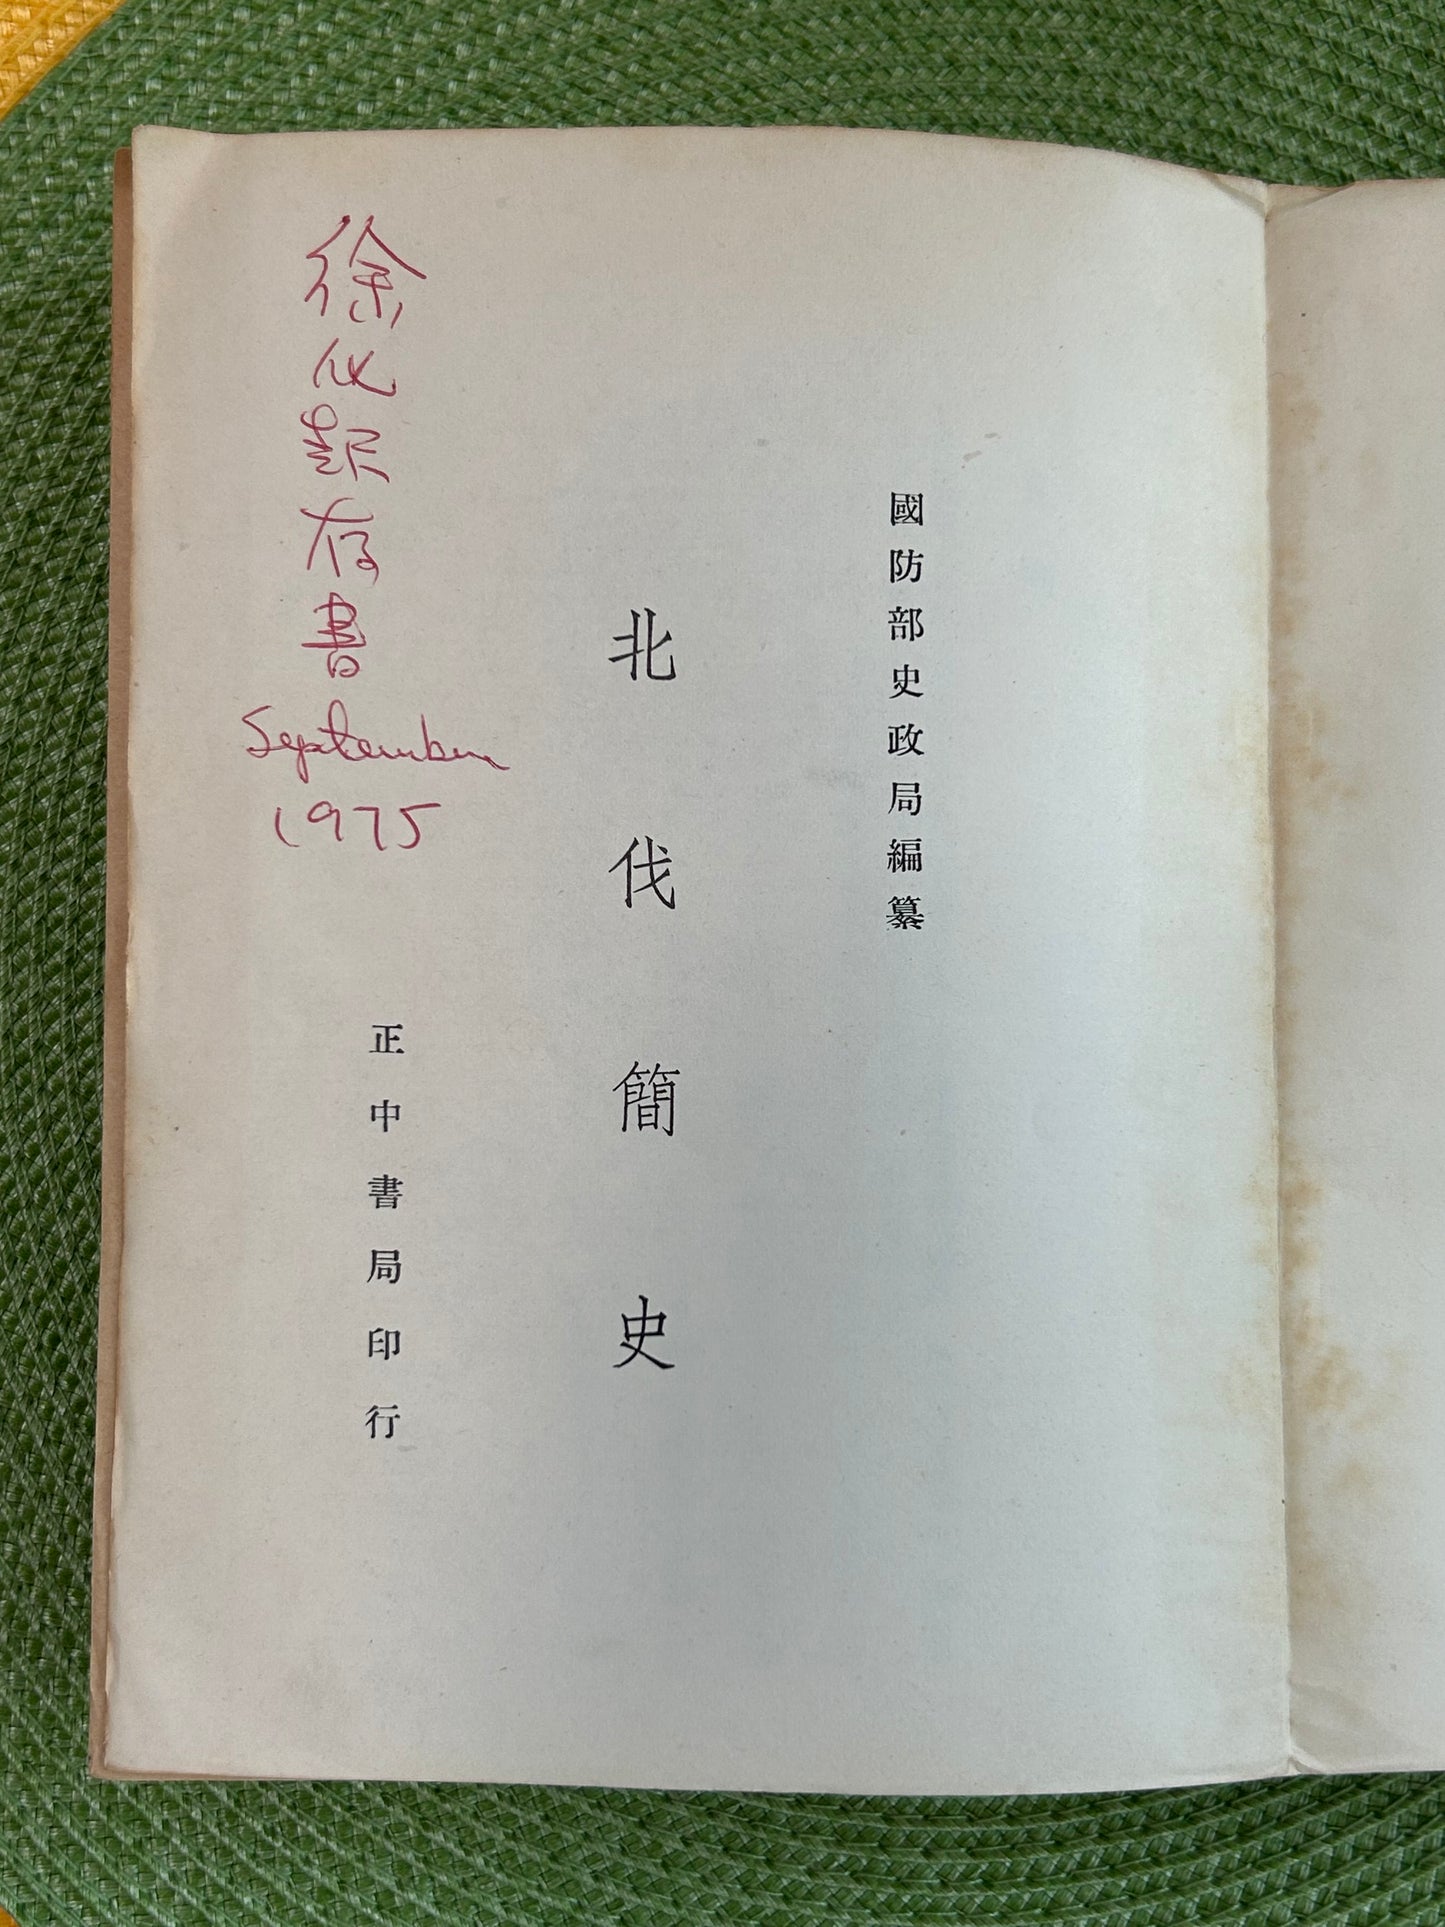 國防部史政局編纂
北伐簡史
正中書局印行
徐 存書
September
1975